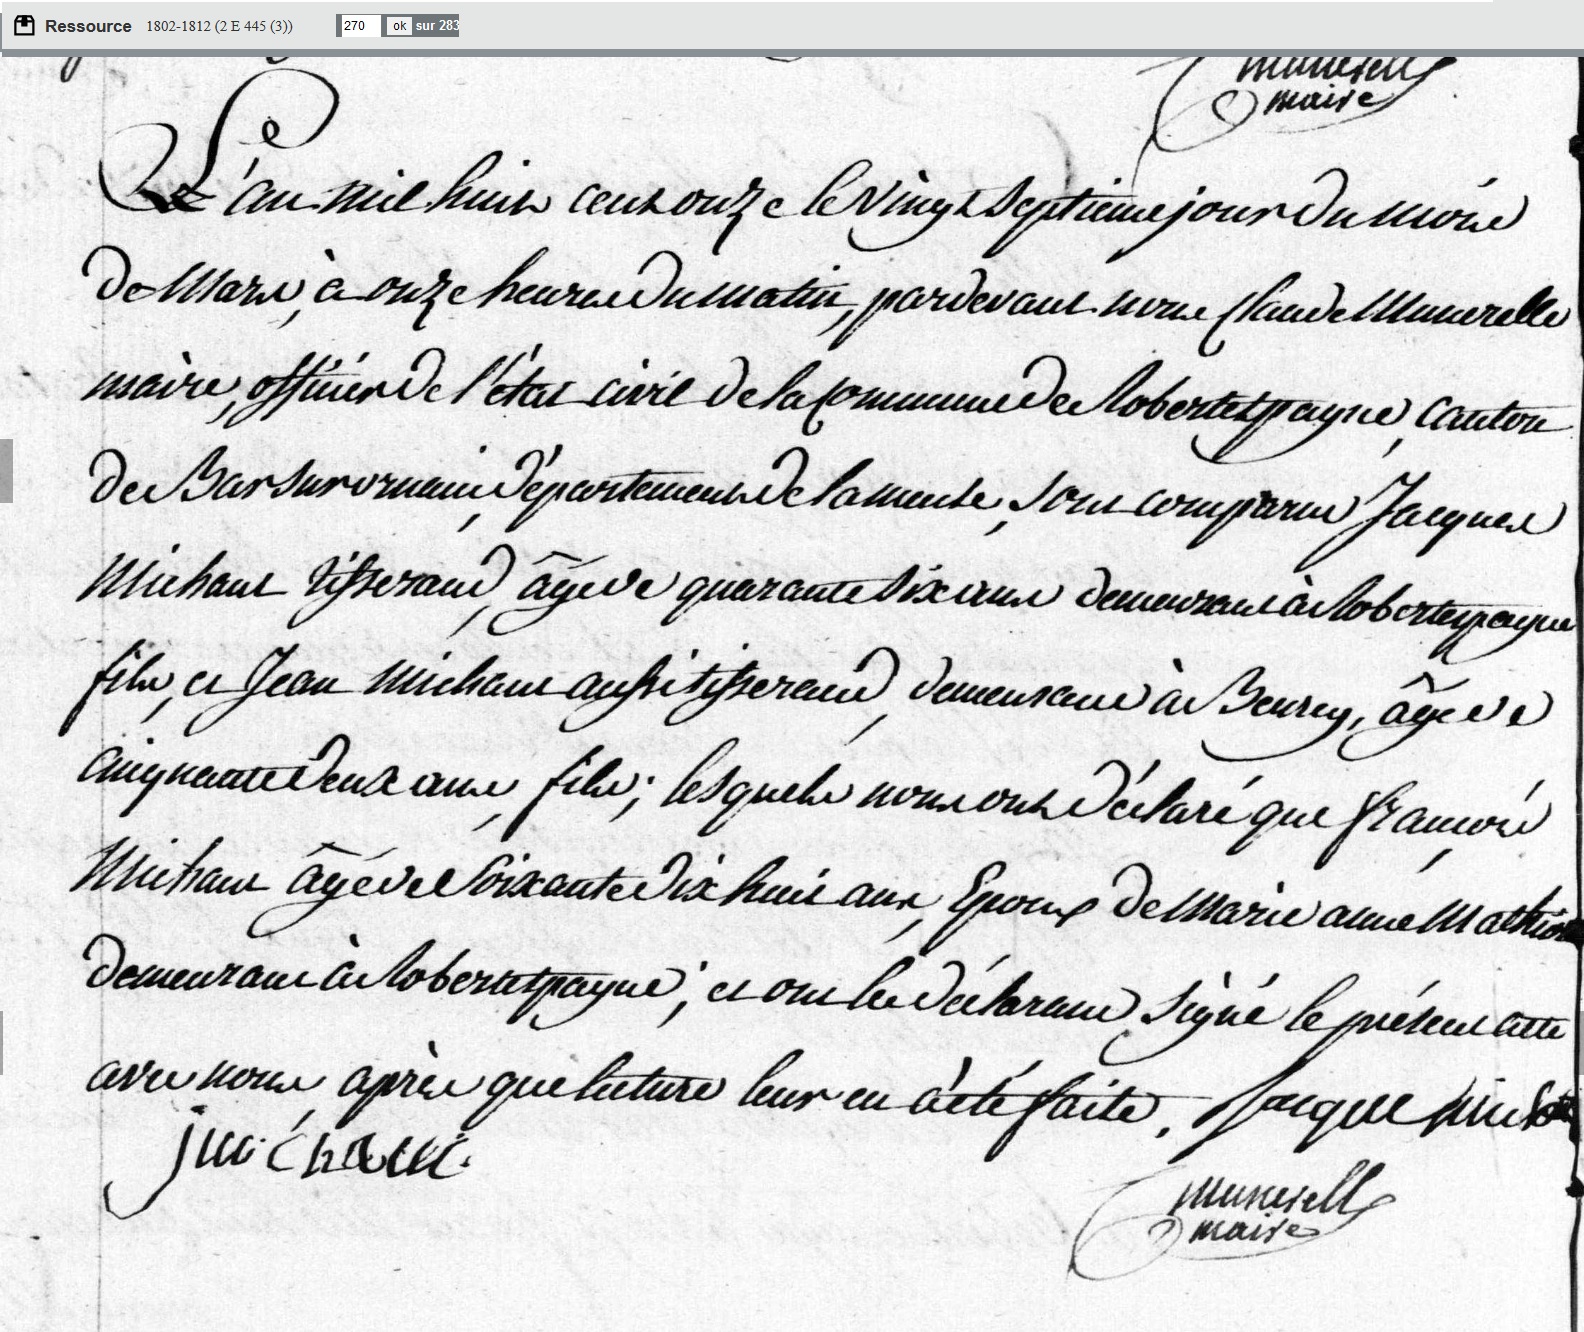 Ressource 1802-1812 (2 E 445 (3)) 270 ok sur 283
maire
L'an mil huit cent onze le vingt septieme jour du mois
de Mars, à onze heures du matin, pardevant nous Claude Munerelle
maire, officier de l'état civil de la Commune de Robertespagne, Canton
de Bar sur ornain, département de la meuse, sont comparus Jacques
Michaut tisserand, âgé de quarante six ans demeurant à Robertespagne
fils, et Jean Michaut aussi tisserand, demeurant à Beurey, âgé de
cinquante deux ans, fils; lesquels nous ont déclaré que françois
Michaut âgé de soixante dix huit ans, Epoux de Marie anne Mathiot
demeurant à Robertespagne; et ont les déclarans signé le présent acte
avec nous après que lecture leur en à été faite. Jacque
j michaut
munerelle
maire